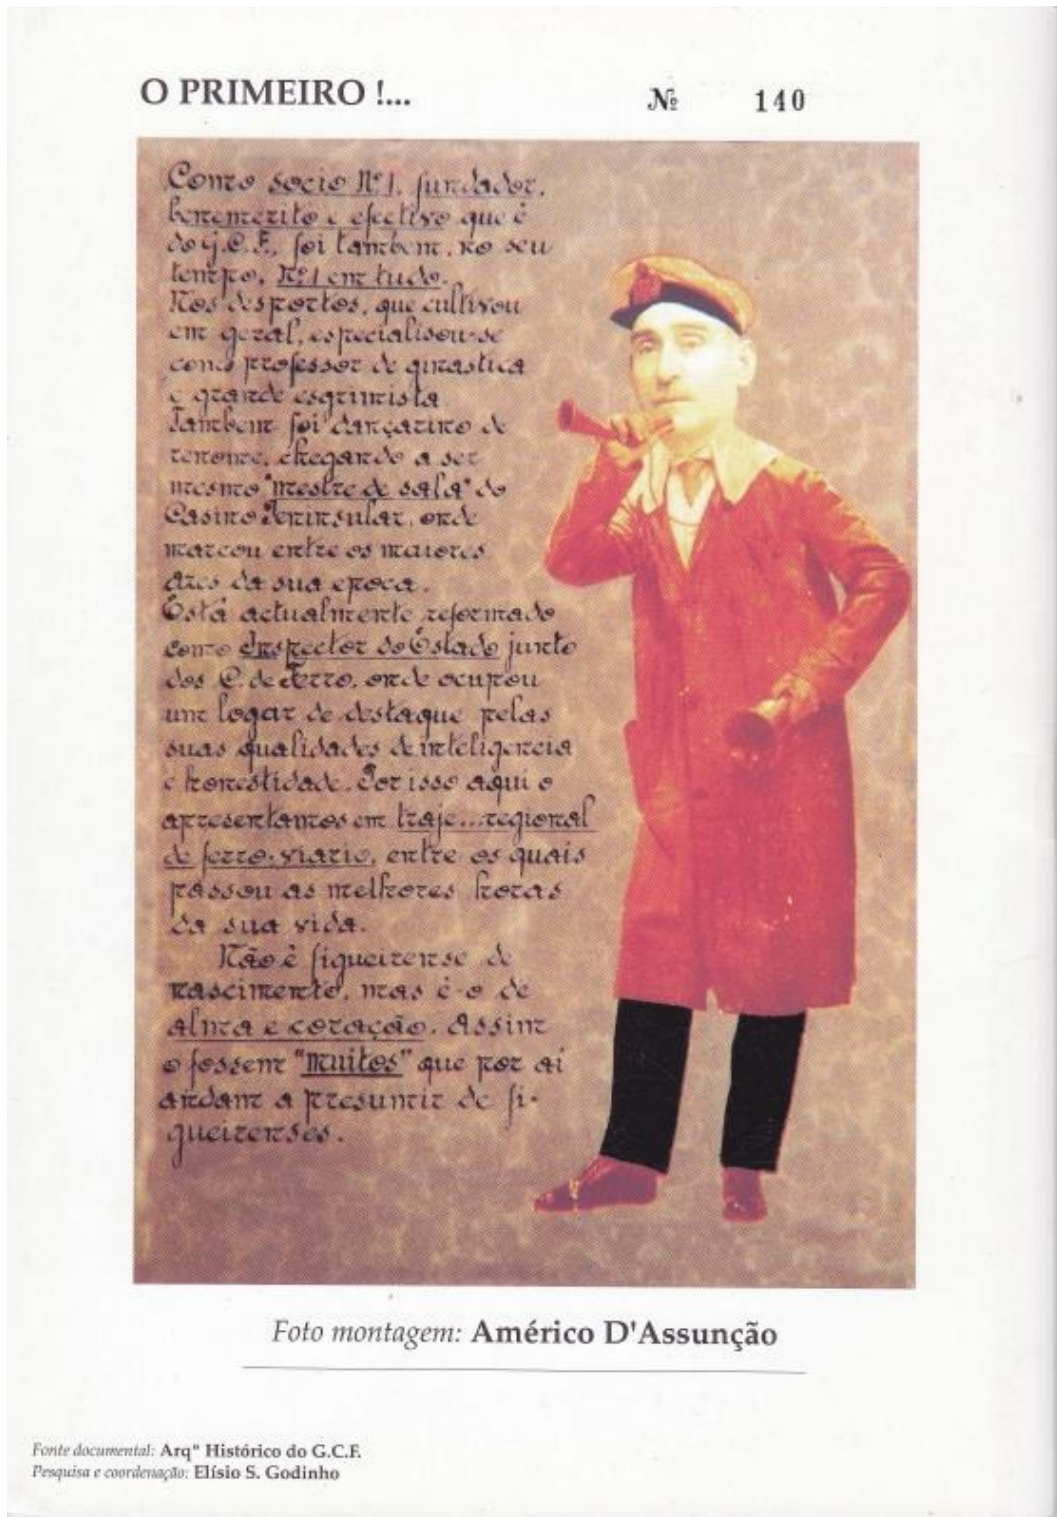 O PRIMEIRO !...
Nº 140
Como socio Nº1, fundador,
benemerito e efectivo que é
do G.C.F., foi tambem, no seu
tempo, Nº1 em tudo.
Nos desportos, que cultivou
em geral, especialisou-se
como professor de ginastica
e grande esgrimista
Tambem foi dançarino de
renome, chegando a ser
mesmo "mestre de sala" do
Casino Peninsular, onde
marcou entre os maiores
azes da sua epoca.
Está actualmente reformado
como Inspector do Estado junto
dos C. de Ferro, onde ocupou
um logar de destaque pelas
suas qualidades de inteligencia
e honestidade. Por isso aqui o
apresentamos em traje...regional
de ferro-viario, entre os quais
passou as melhores horas
da sua vida.
Não é figueirense de
nascimento, mas é-o de
alma e coração. Assim
o fossem "muitos" que por aí
andam a presumir de fi-
gueirenses.
Foto montagem: Américo D'Assunção
Fonte documental: Arqº Histórico do G.C.F.
Pesquisa e coordenação: Elísio S. Godinho